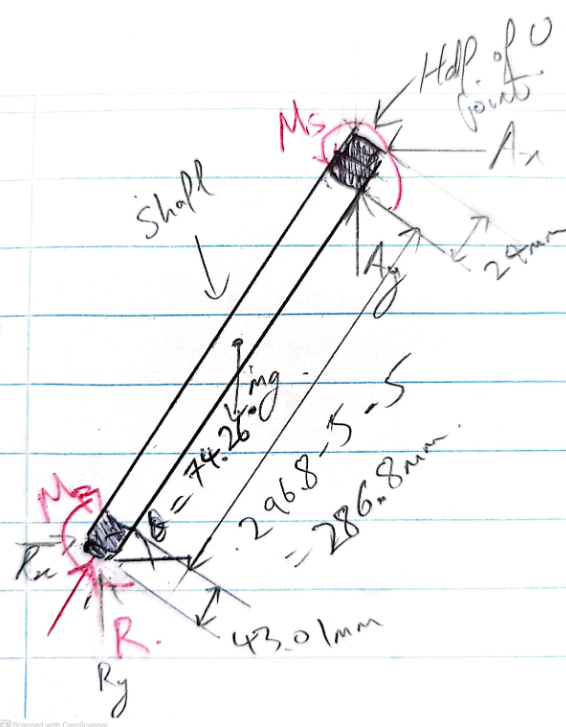 Half of U
joint
Ms
Ax
Shaft
24mm
Ay
mg
θ = 74.26°
296.8-5-5
= 286.8mm
Rx
43.01mm
R
Ry
CS Scanned with CamScanner